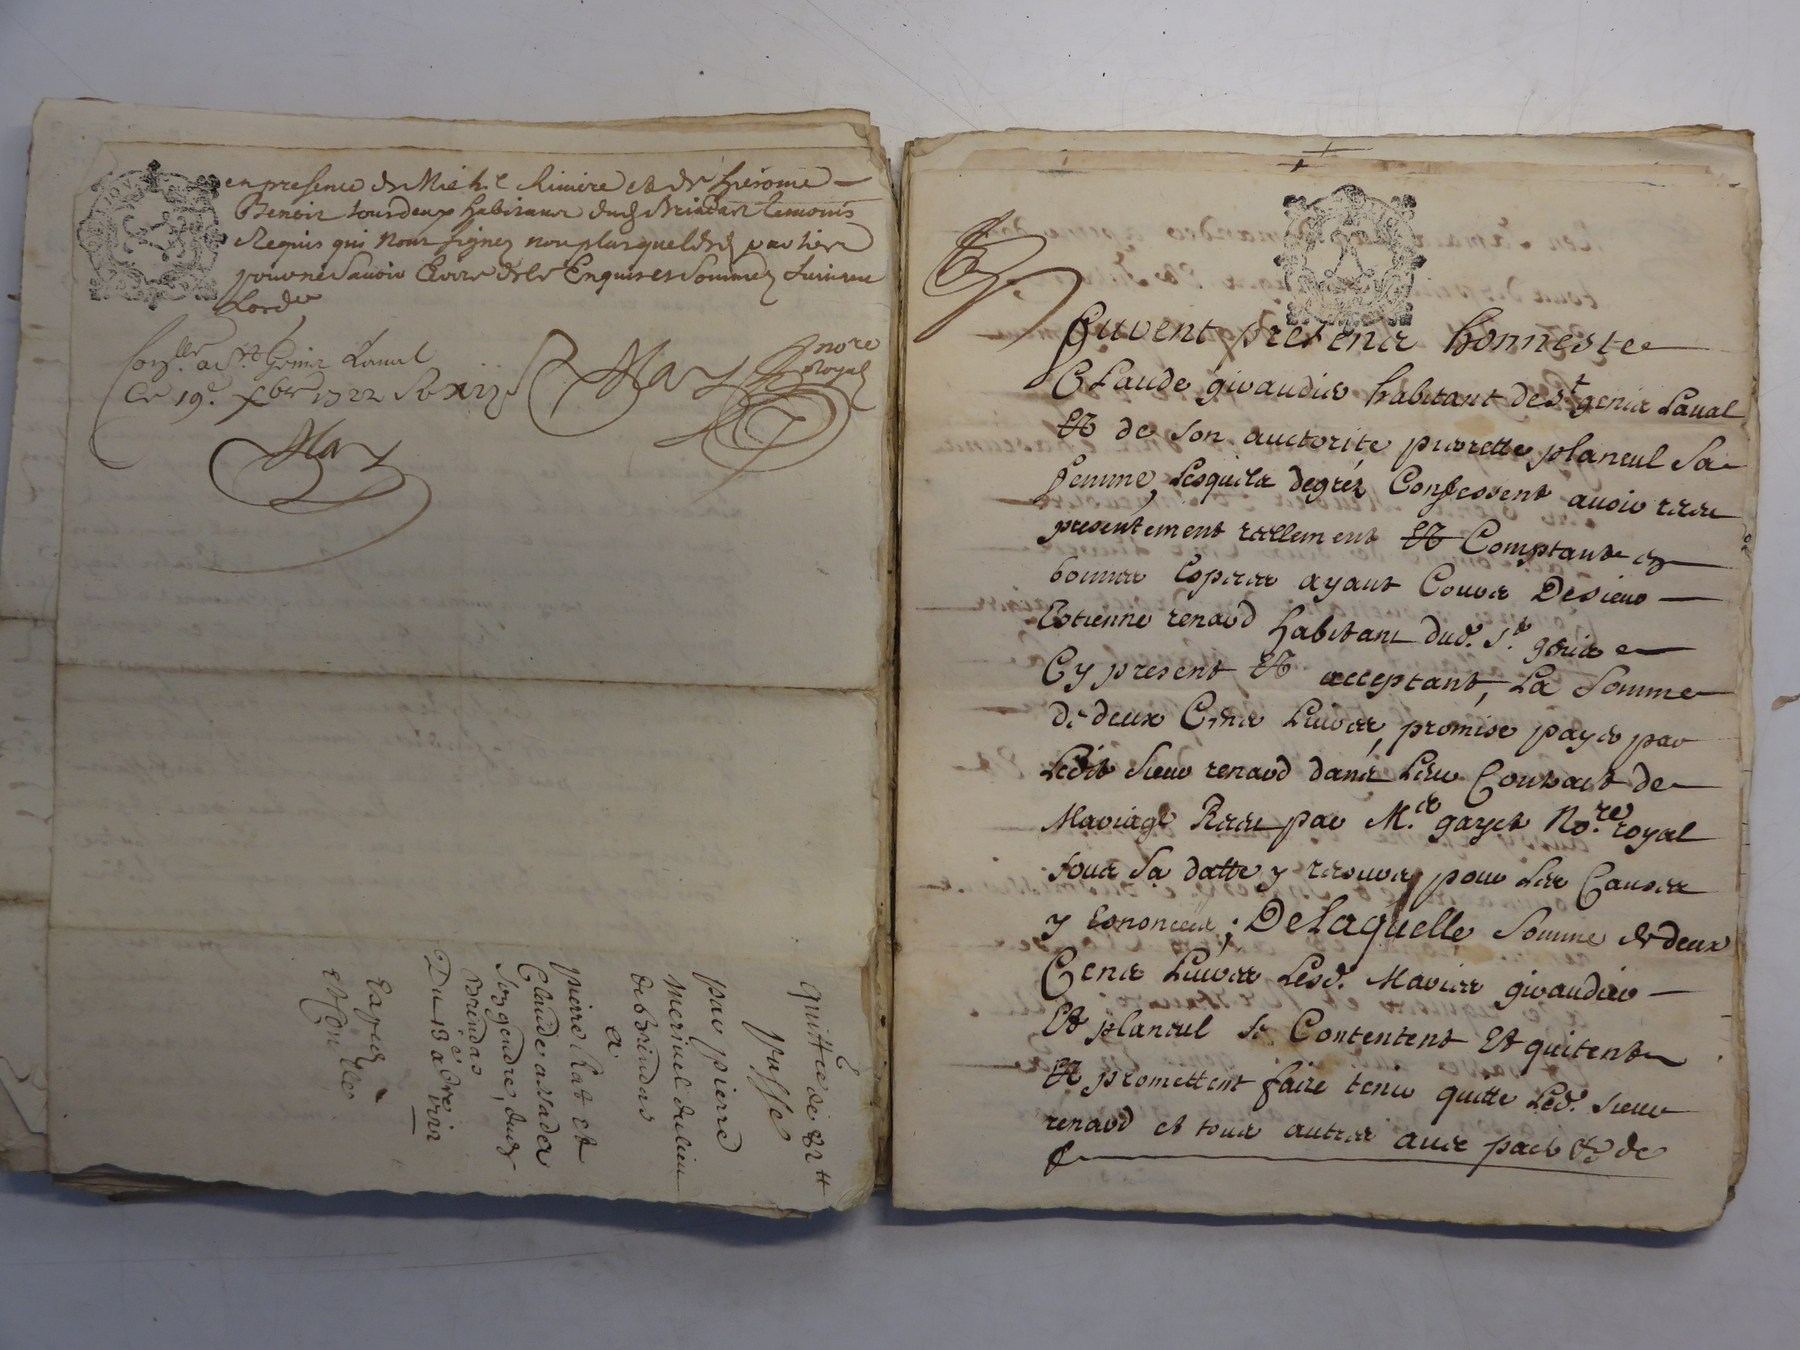 en presence de Mich.l Riviere et de hierome
Benoit tous deux habitans dud Brindas temoins
Requis qui n'ont signez non plus que lesd parties
pour ne savoir Ecrire de le Enquis et sommez suivant
Lord.e
a St Genis Laval
Ce 19.e xbre 1722
May
no.re
Royal
May
quittée de 82 tt
passé
par pierre
meriuel du lieu
de Brindas
a
pierre Rat et
Claude assada
son gendre, dud
Brindas
Du 13 a
Expedié
et Conllé
Suvent presens honneste
Claude givaudin habitant de St genis Laval
Et de son auctorite pierrette planeul sa
femme, Lesquels degrés Confessent avoir receu
presentement reellement Et Comptant en
bonnes Espaces ayant Cours De sieur
Estienne renard habitant dud. St. genis
Cy present Et acceptant, La somme
de deux Cens Livres, promise payer par
Ledit sieur renard dans Leur Contract de
Mariage Receu par M.e gayet No.re royal
sous sa datte y trouver pour Les Causes
y Enoncees; De Laquelle somme de deux
Cens Livres Lesd. Maries givaudin
Et planeul se Contentent Et quitent
Et promettent faire tenir quitte Led. sieur
renard et tous autres avec pact &c de